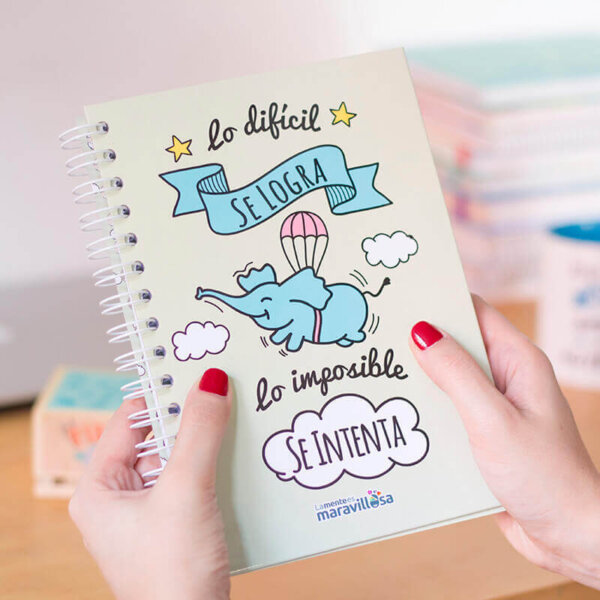 lo difícil
SE LOGRA
lo imposible
SE INTENTA
La mente es
maravillosa